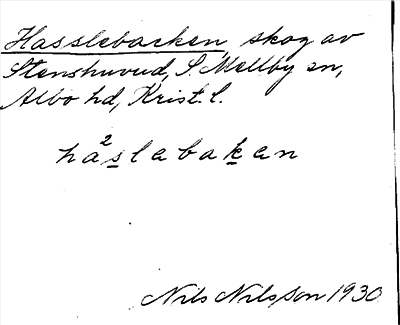 Hasslebacken, skog av
Stenshuvud, S. Mellby sn,
Albo hd, Krist. l.
ha²slebaken
Nils Nilsson 1930